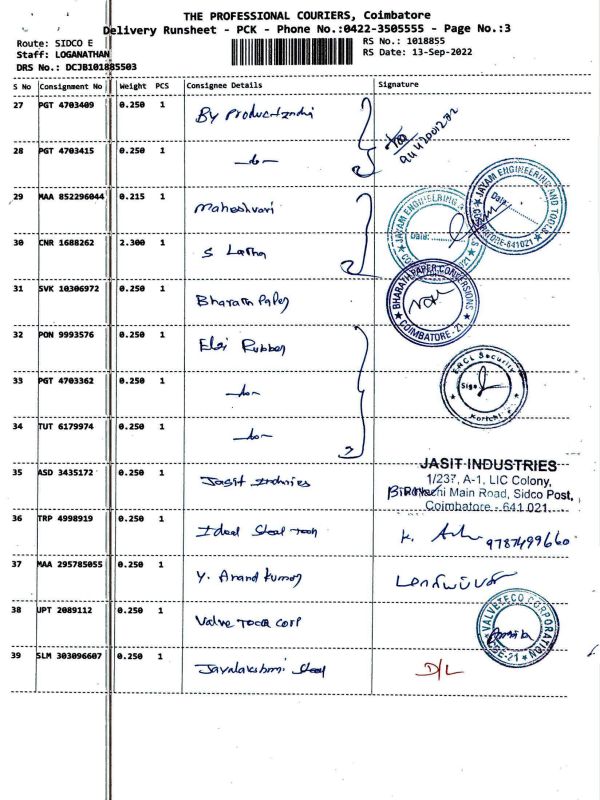 THE PROFESSIONAL COURIERS, Coimbatore
Delivery Runsheet - PCK - Phone No.:0422-3505555 - Page No.:3
Route: SIDCO E
RS No.: 1018855
Staff: LOGANATHAN
RS Date: 13-Sep-2022
DRS No.: DCJB101885503
S No Consignment No Weight PCS Consignee Details Signature
27 PGT 4703409 0.250 1 By Product India
28 PGT 4703415 0.250 1 -do-
29 MAA 852296044 0.215 1 Maheshvari
JAYAM ENGINEERING AND TOOLS
Date:
COIMBATORE-641021
30 CNR 1688262 2.300 1 S Latha
31 SVK 10306972 0.250 1 Bharath Paper
BHARATH PAPER CONVERSIONS
COIMBATORE - 21
32 PON 9993576 0.250 1 Elgi Rubber
33 PGT 4703362 0.250 1 -do-
ERCL Security
Sign
Kurichi
34 TUT 6179974 0.250 1 -do-
35 ASD 3435172 0.250 1 Jasit Indries
JASIT INDUSTRIES
1/237, A-1, LIC Colony,
Main Road, Sidco Post,
Coimbatore - 641 021.
36 TRP 4998919 0.250 1 Ideal Steel Tech
9787499660
37 MAA 295785055 0.250 1 Y. Anand Kumar
38 UPT 2089112 0.250 1 Valve Tech Corp
VALVETECO CORPORATION
CBE-21
39 SLM 303096607 0.250 1 Jayalakshmi Steel D/L